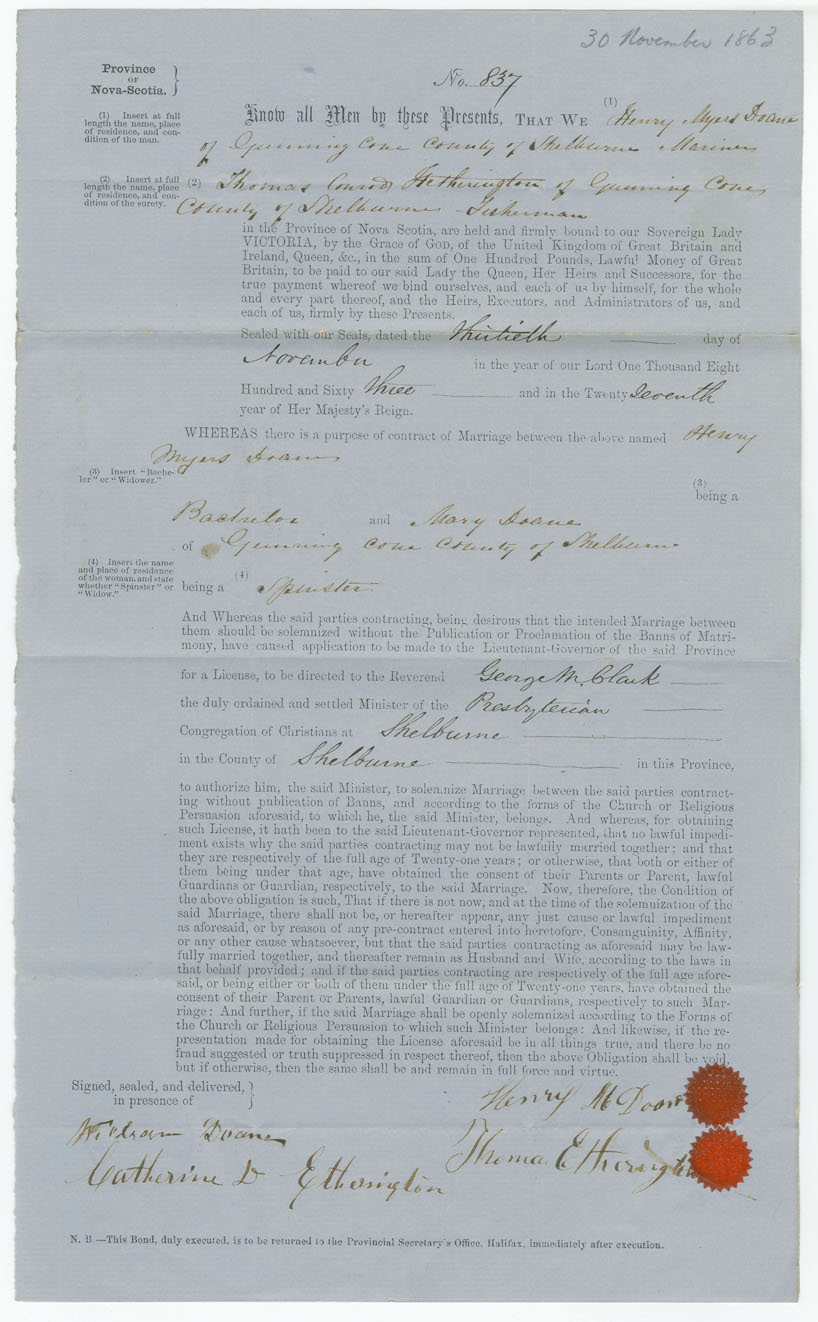 30 November 1863
Province
OF
Nova-Scotia.
No. 837
(1) Insert at full
length the name, place
of residence, and con-
dition of the man.
Know all Men by these Presents, THAT WE (1) Henry Myers Doane
of Gunning Cove County of Shelburne Mariner
(2) Insert at full
length the name, place
of residence, and con-
dition of the surety.
(2) Thomas Conrod Hetherington of Gunning Cove
County of Shelburne Fisherman
in the Province of Nova Scotia, are held and firmly bound to our Sovereign Lady
VICTORIA, by the Grace of GOD, of the United Kingdom of Great Britain and
Ireland, Queen, &c., in the sum of One Hundred Pounds, Lawful Money of Great
Britain, to be paid to our said Lady the Queen, Her Heirs and Successors, for the
true payment whereof we bind ourselves, and each of us by himself, for the whole
and every part thereof, and the Heirs, Executors, and Administrators of us, and
each of us, firmly by these Presents.
Sealed with our Seals, dated the Thirtieth day of
November in the year of our Lord One Thousand Eight
Hundred and Sixty three and in the Twenty Seventh
year of Her Majesty's Reign.
WHEREAS there is a purpose of contract of Marriage between the above named Henry
Myers Doane
(3) Insert "Bache-
lor" or "Widower."
(3)
being a
Bachelor and Mary Doane
of Gunning Cove County of Shelburne
(4) Insert the name
and place of residence
of the woman, and state
whether "Spinster" or
"Widow."
being a (4) Spinster
And Whereas the said parties contracting, being desirous that the intended Marriage between
them should be solemnized without the Publication or Proclamation of the Banns of Matri-
mony, have caused application to be made to the Lieutenant-Governor of the said Province
for a License, to be directed to the Reverend George M. Clark
the duly ordained and settled Minister of the Presbyterian
Congregation of Christians at Shelburne
in the County of Shelburne in this Province,
to authorize him, the said Minister, to solemnize Marriage between the said parties contract-
ing without publication of Banns, and according to the forms of the Church or Religious
Persuasion aforesaid, to which he, the said Minister, belongs. And whereas, for obtaining
such License, it hath been to the said Lieutenant-Governor represented, that no lawful impedi-
ment exists why the said parties contracting may not be lawfully married together; and that
they are respectively of the full age of Twenty-one years; or otherwise, that both or either of
them being under that age, have obtained the consent of their Parents or Parent, lawful
Guardians or Guardian, respectively, to the said Marriage. Now, therefore, the Condition of
the above obligation is such, That if there is not now, and at the time of the solemnization of the
said Marriage, there shall not be, or hereafter appear, any just cause or lawful impediment
as aforesaid, or by reason of any pre-contract entered into heretofore, Consanguinity, Affinity,
or any other cause whatsoever, but that the said parties contracting as aforesaid may be law-
fully married together, and thereafter remain as Husband and Wife, according to the laws in
that behalf provided; and if the said parties contracting are respectively of the full age afore-
said, or being either or both of them under the full age of Twenty-one years, have obtained the
consent of their Parent or Parents, lawful Guardian or Guardians, respectively to such Mar-
riage: And further, if the said Marriage shall be openly solemnized according to the Forms of
the Church or Religious Persuasion to which such Minister belongs: And likewise, if the re-
presentation made for obtaining the License aforesaid be in all things true, and there be no
fraud suggested or truth suppressed in respect thereof, then the above Obligation shall be void,
but if otherwise, then the same shall be and remain in full force and virtue.
Signed, sealed, and delivered,
in presence of
Henry M Doane
William Doane
Thomas Etherington
Catherine D Etherington
N. B.—This Bond, duly executed, is to be returned to the Provincial Secretary's Office, Halifax, immediately after execution.